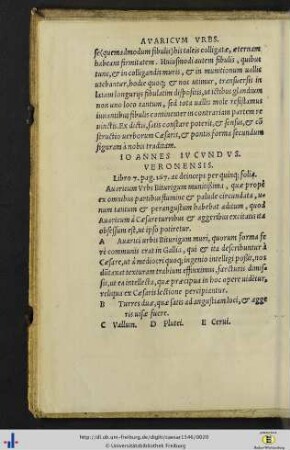 AVARICVM VRBS.
se(quemadmodum fibulis)his taleis colligatæ, æternam
habeant firmitatem. Huiusmodi autem fibulis, quibus
tunc, & in colligandis muris, & in munitionum uallis
utebantur, hodie quoq; & nos utimur, transuersis in
letam longurijs fibulatim dispositis, ut ictibus glandium
non uno loco tantum, sed tota uallis mole resistamus
iuuantibus fibulis eminenter in contrariam partem re
uinctis. Ex dictis, satis constare poterit, & sensus, & cō
structio uerborum Cæsaris, & pontis forma secundum
figuram à nobis traditam.
IOANNES IVCVNDVS
VERONENSIS.
Libro 7. pag. 167. ac deinceps per quinq; folia.
Auaricum Vrbs Biturigum munitissima, quæ propè
ex omnibus partibus flumine & palude circundata, u-
num tantum & perangustum habebat aditum, quod
Auaricum à Cæsare turribus & aggeribus excitatis ita
obsessum est, ut ipso potiretur.
A Auarici urbis Biturigum muri, quorum forma fe
rè communis erat in Gallia, qui & ita describuntur à
Cæsare, ut à mediocri quoq; ingenio intelligi possit, nos
 
reliqua ex Cæsaris lectione percipiantur.
B Turres duæ, quæ satis ad angustiam loci, & agge
ris uisæ fuere.
C Vallum. D Plutei. E Cerui.
http://dl.ub.uni-freiburg.de/diglit/caesar1546/0020
© Universitätsbibliothek Freiburg